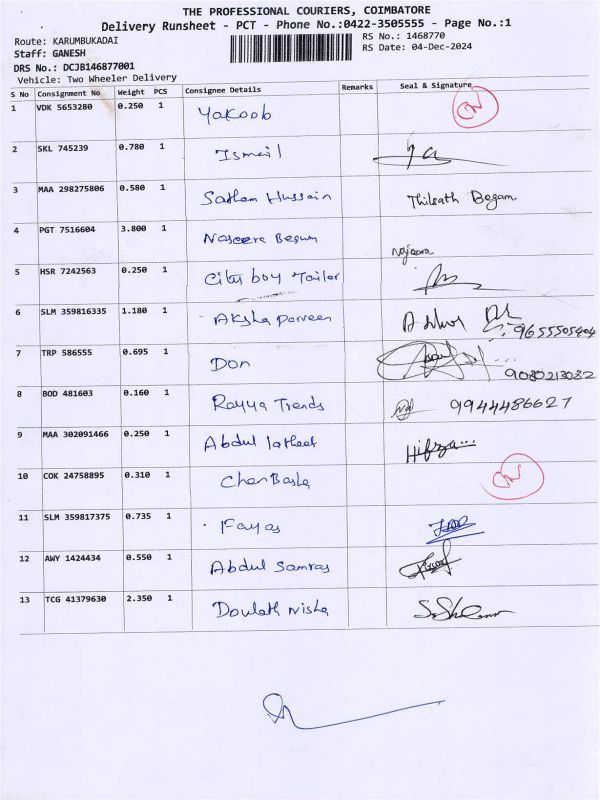 THE PROFESSIONAL COURIERS, COIMBATORE
Delivery Runsheet - PCT - Phone No.:0422-3505555 - Page No.:1
Route: KARUMBUKADAI
RS No.: 1468770
Staff: GANESH
RS Date: 04-Dec-2024
DRS No.: DCJB146877001
Vehicle: Two Wheeler Delivery
S No Consignment No Weight PCS Consignee Details Remarks Seal & Signature
1 VDK 5653280 0.250 1 Yakoob
2 SKL 745239 0.780 1 Ismail
3 MAA 298275806 0.580 1 Satham Hussain Thilsath Begam
4 PGT 7516604 3.800 1 Naseera Begum
5 HSR 7242563 0.250 1 City boy Tailor
6 SLM 359816335 1.180 1 Aksha parveen 9655505404
7 TRP 586555 0.695 1 Don 9080213082
8 BOD 481603 0.160 1 Rayya Trends 9944486627
9 MAA 302091466 0.250 1 Abdul latheef
10 COK 24758895 0.310 1 Chan Basha
11 SLM 359817375 0.735 1 Fayas
12 AWY 1424434 0.550 1 Abdul Samras
13 TCG 41379630 2.350 1 Doulath nisha